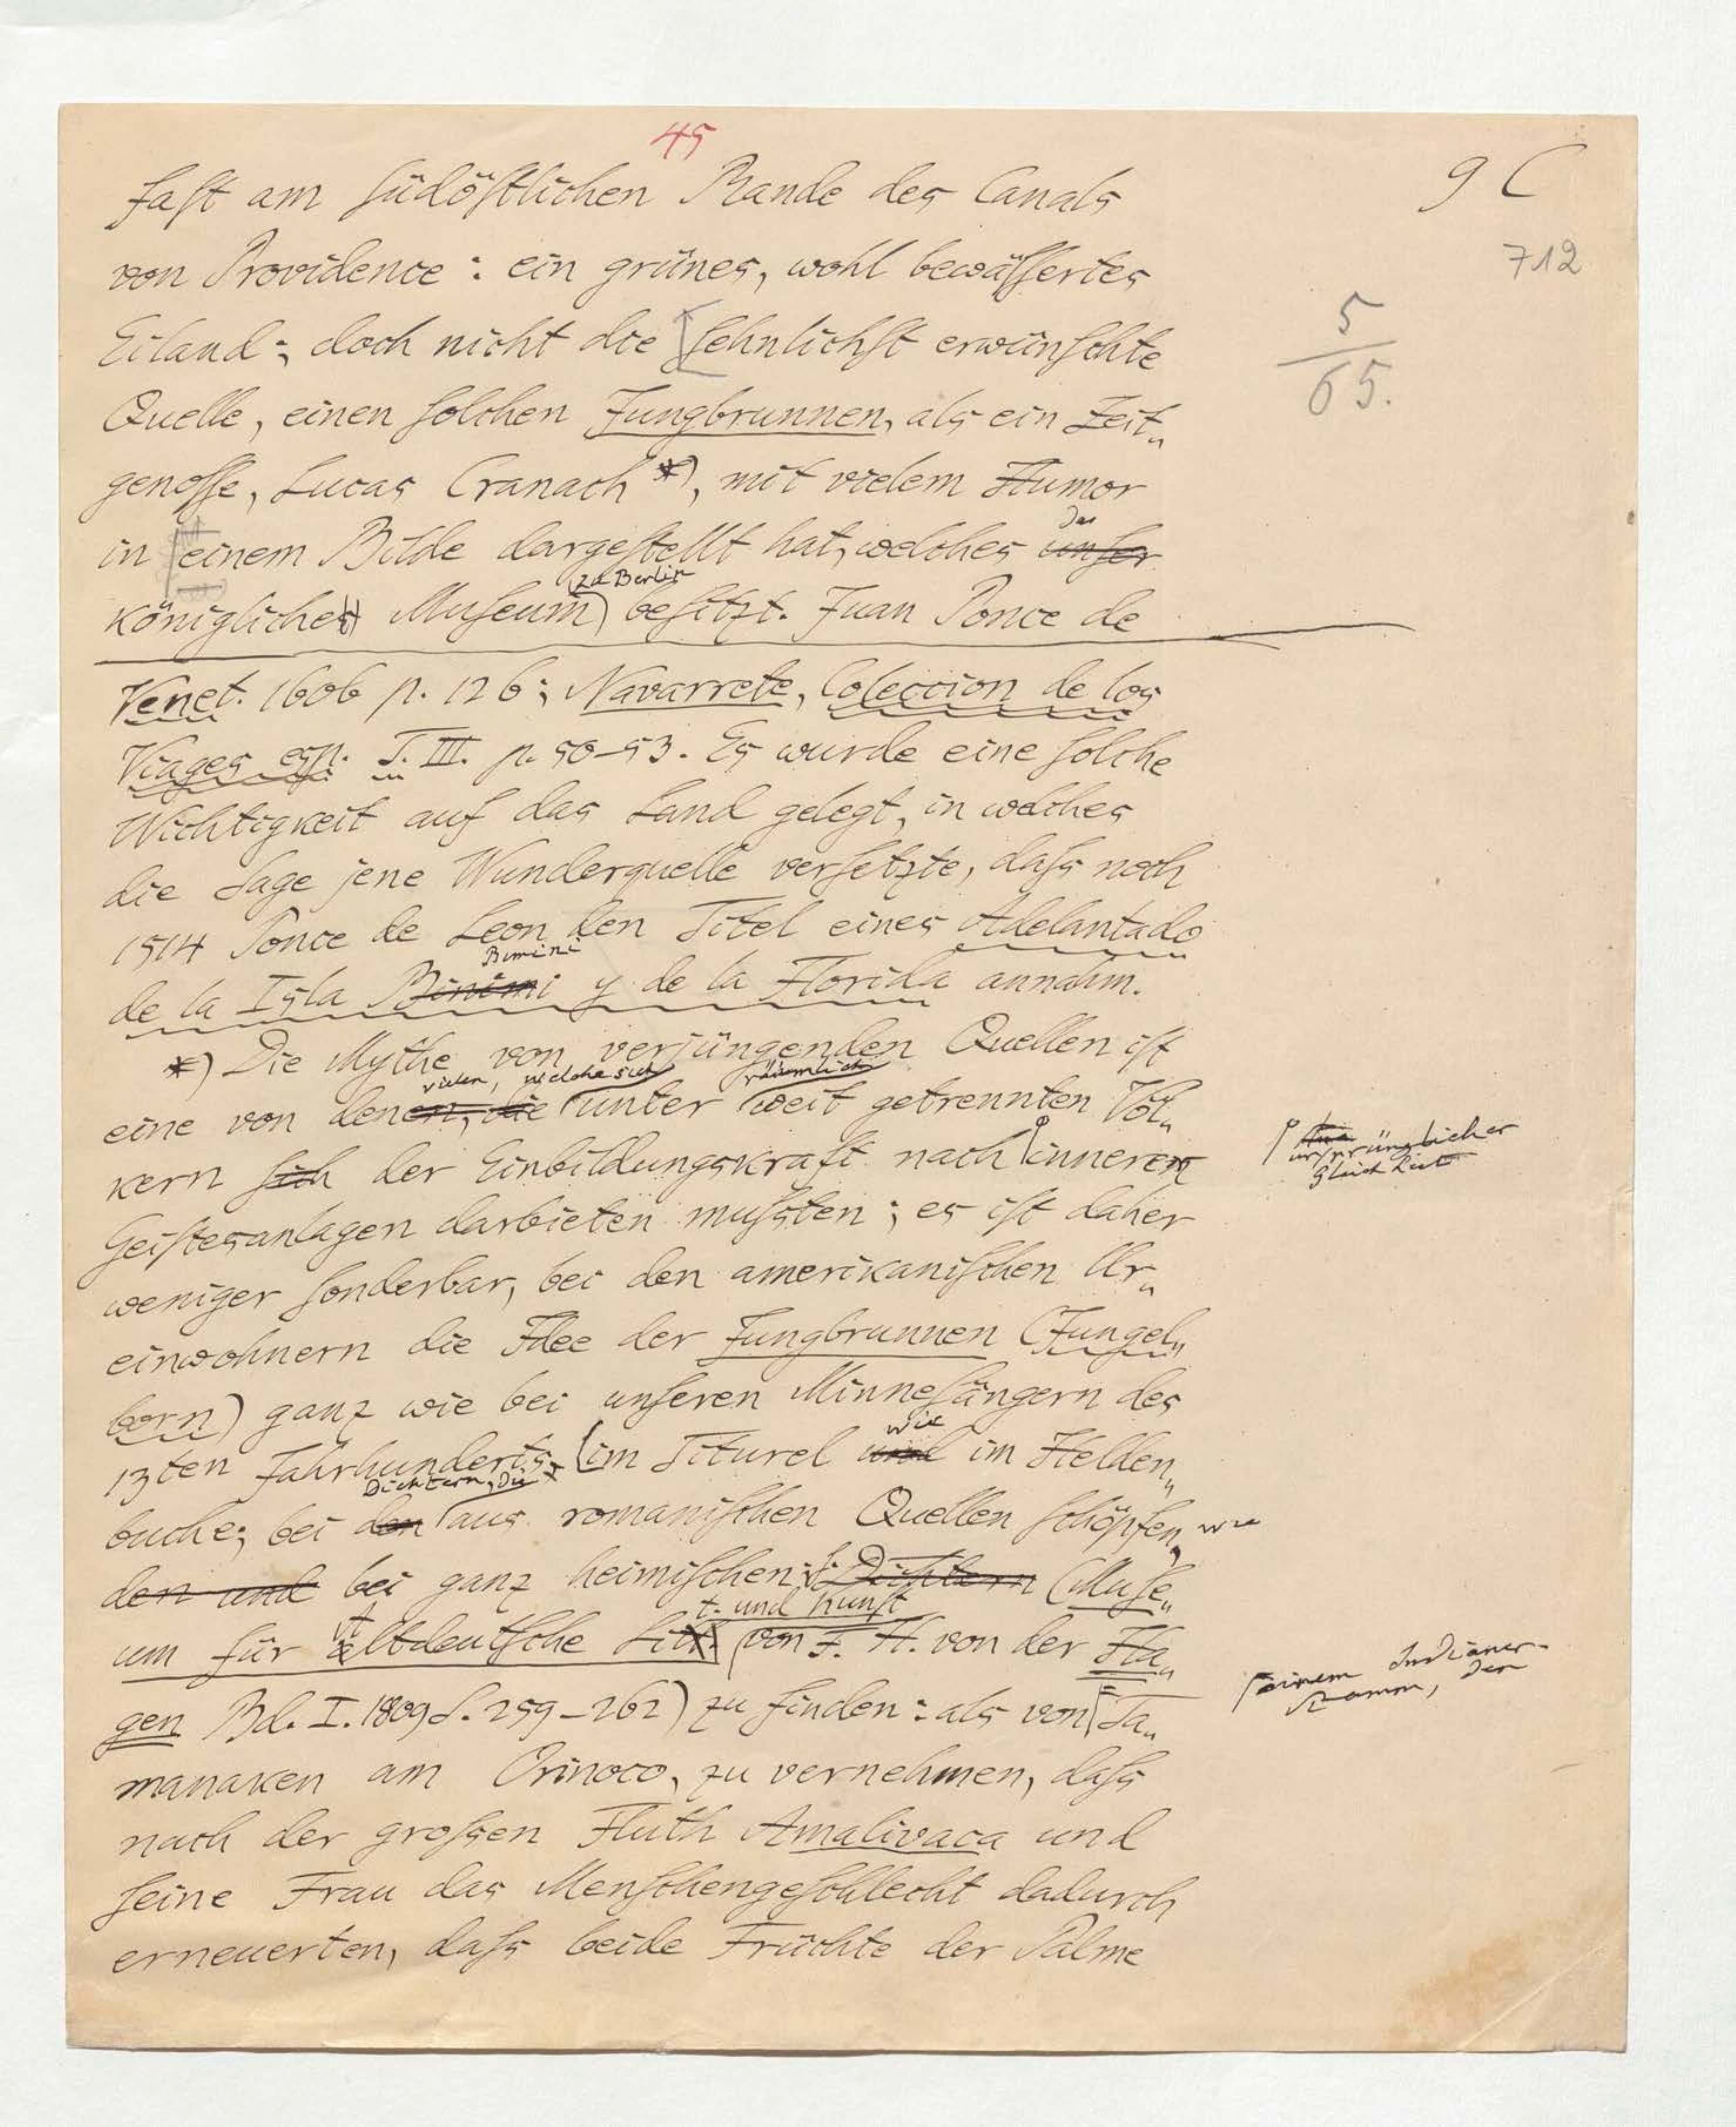 45
9 C
712
5
65.
fast am südöstlichen Rande des Canals
von Providence: ein grünes, wohl bewässertes
Eiland; doch nicht die sehnlichst erwünschte
Quelle, einen solchen Jungbrunnen, als ein Zeit„
genosse, Lucas Cranach *), mit vielem Humor
in einem Bilde dargestellt hat, welches unser
das
königliches Museum besitzt. Juan Ponce de
zu Berlin
Venet. 1606 p. 126; Navarrete, Coleccion de los
Viages esp. T. III. p. 50–53. Es wurde eine solche
Wichtigkeit auf das Land gelegt, in welches
die Sage jene Wunderquelle versetzte, dass noch
1514 Ponce de Leon den Titel eines Adelantado
Bimini
de la Isla Binimi y de la Florida annahm.
*) Die Mythe von verjüngenden Quellen ist
vielen, welche sich räumlich
eine von denen, die unter weit getrennten Völ„
kern sich der Einbildungskraft nach inneren
ursprünglicher
Gleichheit
Geistesanlagen darbieten mussten; es ist daher
weniger sonderbar, bei den amerikanischen Ur„
einwohnern die Idee der Jungbrunnen (Jungel„
born) ganz wie bei unseren Minnesängern des
wie
13ten Jahrhunderts (im Titurel und im Helden„
Dichtern, die
buche; bei den aus romanischen Quellen schöpfen, wie
den und bei ganz heimischen: Dichtern (Muse„
t. und Kunst
um für altdeutsche Lit. von F. H. von der Ha„
gen Bd. I. 1809 S. 259–262) zu finden: als von Ta„
einem Indianer-
Stamm, den
manaken am Orinoco, zu vernehmen, dass
nach der grossen Fluth Amalivaca und
seine Frau das Menschengeschlecht dadurch
erneuerten, dass beide Früchte der Palme